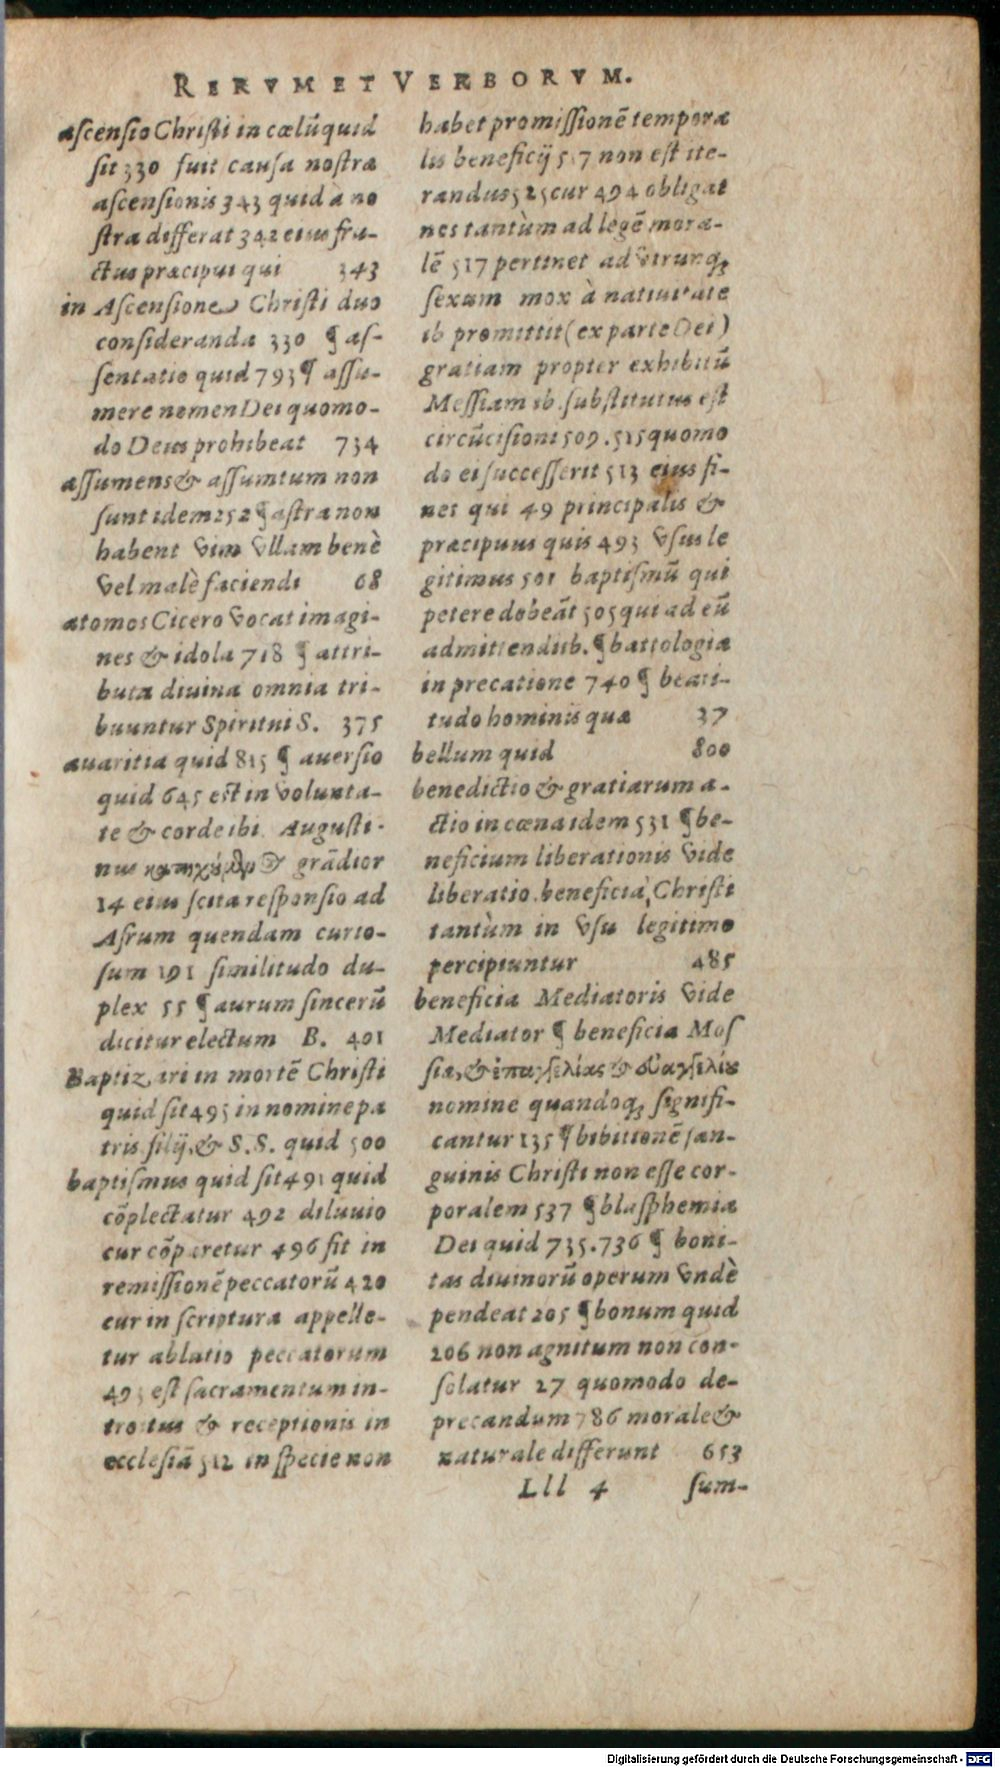 RERVM ET VERBORVM.
ascensio Christi in cœlũ quid
sit 330 fuit causa nostræ
ascensionis 343 quid à no
stra differat 342 eius fru-
ctus præcipui qui 343
in Ascensione Christi duo
consideranda 330 ¶ as-
sentatio quid 793 ¶ assu-
mere nomen Dei quomo-
do Deus prohibeat 734
assumens & assumtum non
sunt idem 252 ¶ astra non
habent vim vllam benè
vel malè faciendi 68
atomos Cicero vocat imagi-
nes & idola 718 ¶ attri-
buta diuina omnia tri-
buuntur Spiritui S. 375
auaritia quid 815 ¶ auersio
quid 645 est in volunta-
te & corde ibi. Augusti-
nus grãdior
14 eius scita responsio ad
Afrum quendam curio-
sum 191 similitudo du-
plex 55 ¶ aurum sincerũ
dicitur electum B. 401
Baptizari in mortẽ Christi
quid sit 495 in nomine pa
tris filij, & S. S. quid 500
baptismus quid sit 491 quid
cõplectatur 492 diluuio
cur cõparetur 496 fit in
remissionẽ peccatorũ 420
cur in scriptura appelle-
tur ablatio peccatorum
493 est sacramentum in-
troitus & receptionis in
ecclesiã 512 in specie non
habet promissionẽ tempora
lis beneficij 517 non est ite-
randus 525 cur 494 obligat
nos tantùm ad legẽ mora-
lẽ 517 pertinet ad vtrunq;
sexum mox à natiuitate
ib promittit (ex parte Dei)
gratiam propter exhibitũ
Messiam ib. substitutus est
circũcisioni 509. 515 quomo
do ei successerit 513 eius fi-
nes qui 49 principalis &
præcipuus quis 493 vsus le
gitimus 501 baptismũ qui
petere debeãt 505 qui ad eũ
admittendi ib. ¶ battologia
in precatione 740 ¶ beati-
tudo hominis quæ 37
bellum quid 800
benedictio & gratiarum a-
ctio in cœna idem 531 ¶ be-
neficium liberationis vide
liberatio. beneficia, Christi
tantùm in vsu legitimo
percipiuntur 485
beneficia Mediatoris vide
Mediator ¶ beneficia Mes
siæ, & ἐπαγγελίας & εὐαγγελίου
nomine quandoq; signifi-
cantur 135 ¶ bibitionẽ san-
guinis Christi non esse cor-
poralem 537 ¶ blasphemia
Dei quid 735. 736 ¶ boni-
tas diuinorũ operum vndè
pendeat 205 ¶ bonum quid
206 non agnitum non con-
solatur 27 quomodo de-
precandum 786 morale &
naturale differunt 653
Lll 4 sum-
Digitalisierung gefördert durch die Deutsche Forschungsgemeinschaft - DFG